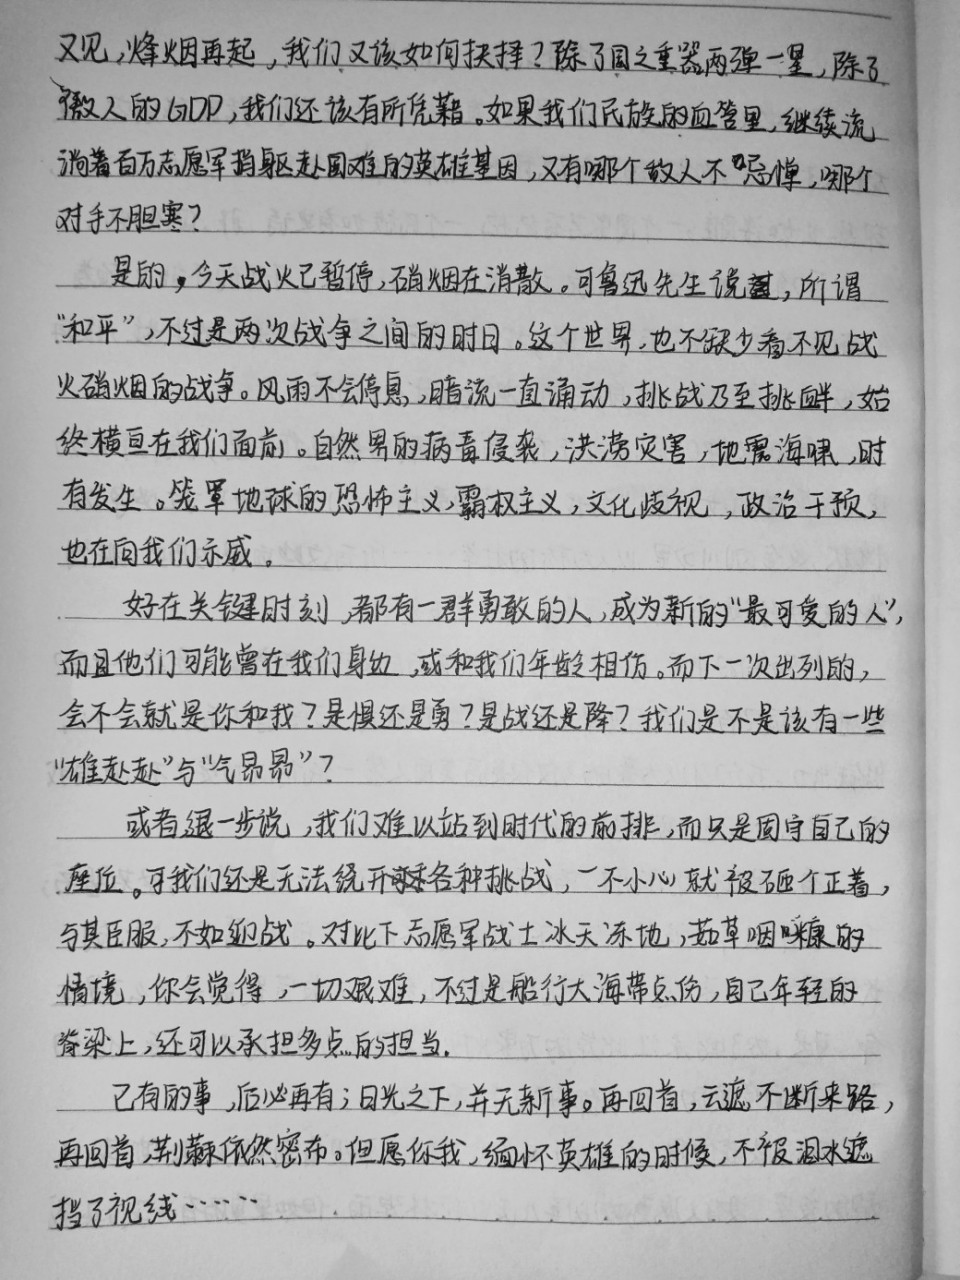 又见,烽烟再起,我们又该如何抉择?除了国之重器两弹一星,除了
傲人的GDP,我们还该有所凭藉。如果我们民族的血管里,继续流
淌着百万志愿军捐躯赴国难的英雄基因,又有哪个敌人不忌惮,哪个
对手不胆寒?
是的,今天战火已暂停,硝烟在消散。可鲁迅先生说,所谓
“和平”,不过是两次战争之间的时日。这个世界,也不缺少看不见战
火硝烟的战争。风雨不会停息,暗流一直涌动,挑战乃至挑衅,始
终横亘在我们面前。自然界的病毒侵袭,洪涝灾害,地震海啸,时
有发生。笼罩地球的恐怖主义,霸权主义,文化歧视,政治干预,
也在向我们示威。
好在关键时刻,都有一群勇敢的人,成为新的“最可爱的人”,
而且他们可能曾在我们身边,或和我们年龄相仿。而下一次出列的,
会不会就是你和我?是惧还是勇?是战还是降?我们是不是该有一些
“雄赳赳”与“气昂昂”?
或者退一步说,我们难以站到时代的前排,而只是固守自己的
座位。可我们还是无法绕开各种挑战,一不小心就被砸个正着,
与其臣服,不如迎战。对比下志愿军战士冰天冻地,茹草咽糠的
情境,你会觉得,一切艰难,不过是船行大海带点伤,自己年轻的
脊梁上,还可以承担多点的担当.
已有的事,后必再有;日光之下,并无新事。再回首,云遮不断来路,
再回首,荆棘依然密布。但愿你我,缅怀英雄的时候,不被泪水遮
挡了视线……